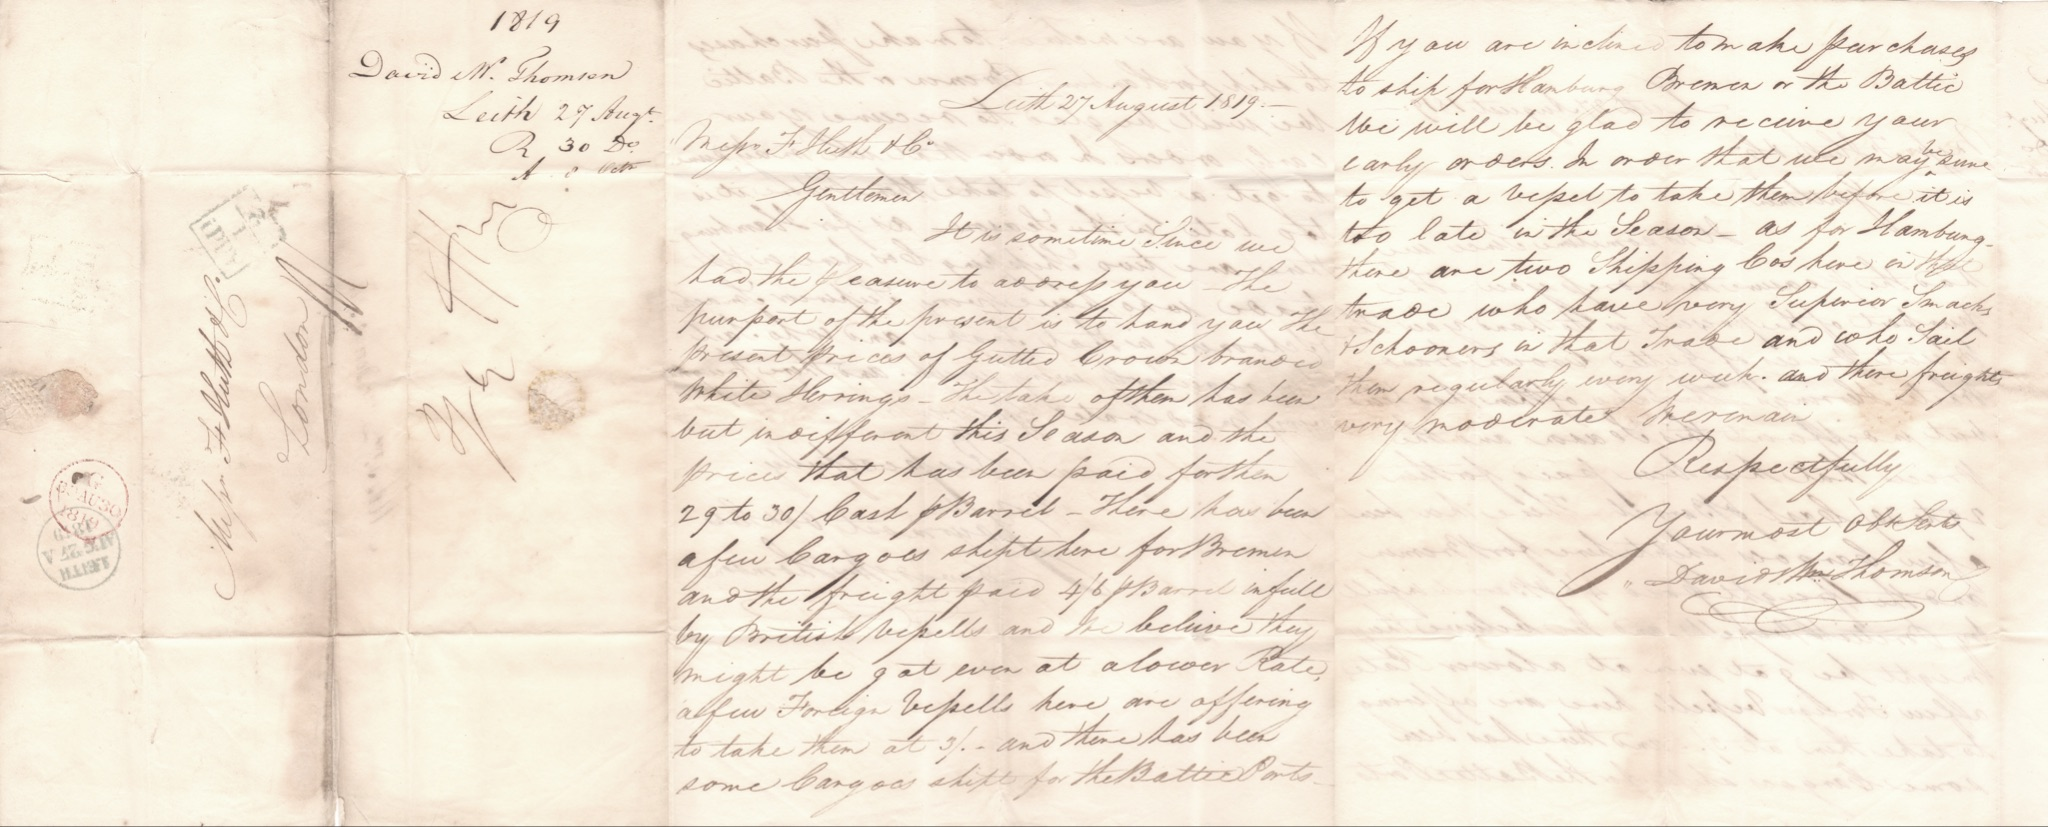 1819
David Wm. Thomson
Leith 27 Augt.
R 30 Do.
A
Messrs. Fk Huth & Co.
London
AUG
LEITH
Leith 27 August 1819 -
Messrs. Fk Huth & Co.
Gentlemen
It is sometime Since we
had the pleasure to address you - The
purport of the present is to hand you The
present prices of Gutted Crown branded
White Herrings - The take of them has been
but indifferent this Season and the
prices that has been paid for them
29 to 30/ Cash p Barrel - There has been
a few Cargoes shipt here for Bremen
and the freight paid 4/6 p Barrel in full
by British Vessells and We believe they
might be got even at a lower Rate,
a few Foreign Vessells here are offering
to take them at 3/. - and there has been
some Cargoes shipt for the Baltic Ports -
If you are inclined to make purchases
to ship for Hamburg Bremen or the Baltic
We will be glad to receive your
early orders. In order that we may be sure
to get a vessel to take them before it is
too late in the Season - as for Hamburg -
there are two Shipping Cos here in that
trade who have very Superior Smacks
& Schooners in that Trade and who Sail
them regularly every week. and there freights
very moderate We remain
Respectfully
Your most Obt Servts
David Wm Thomson